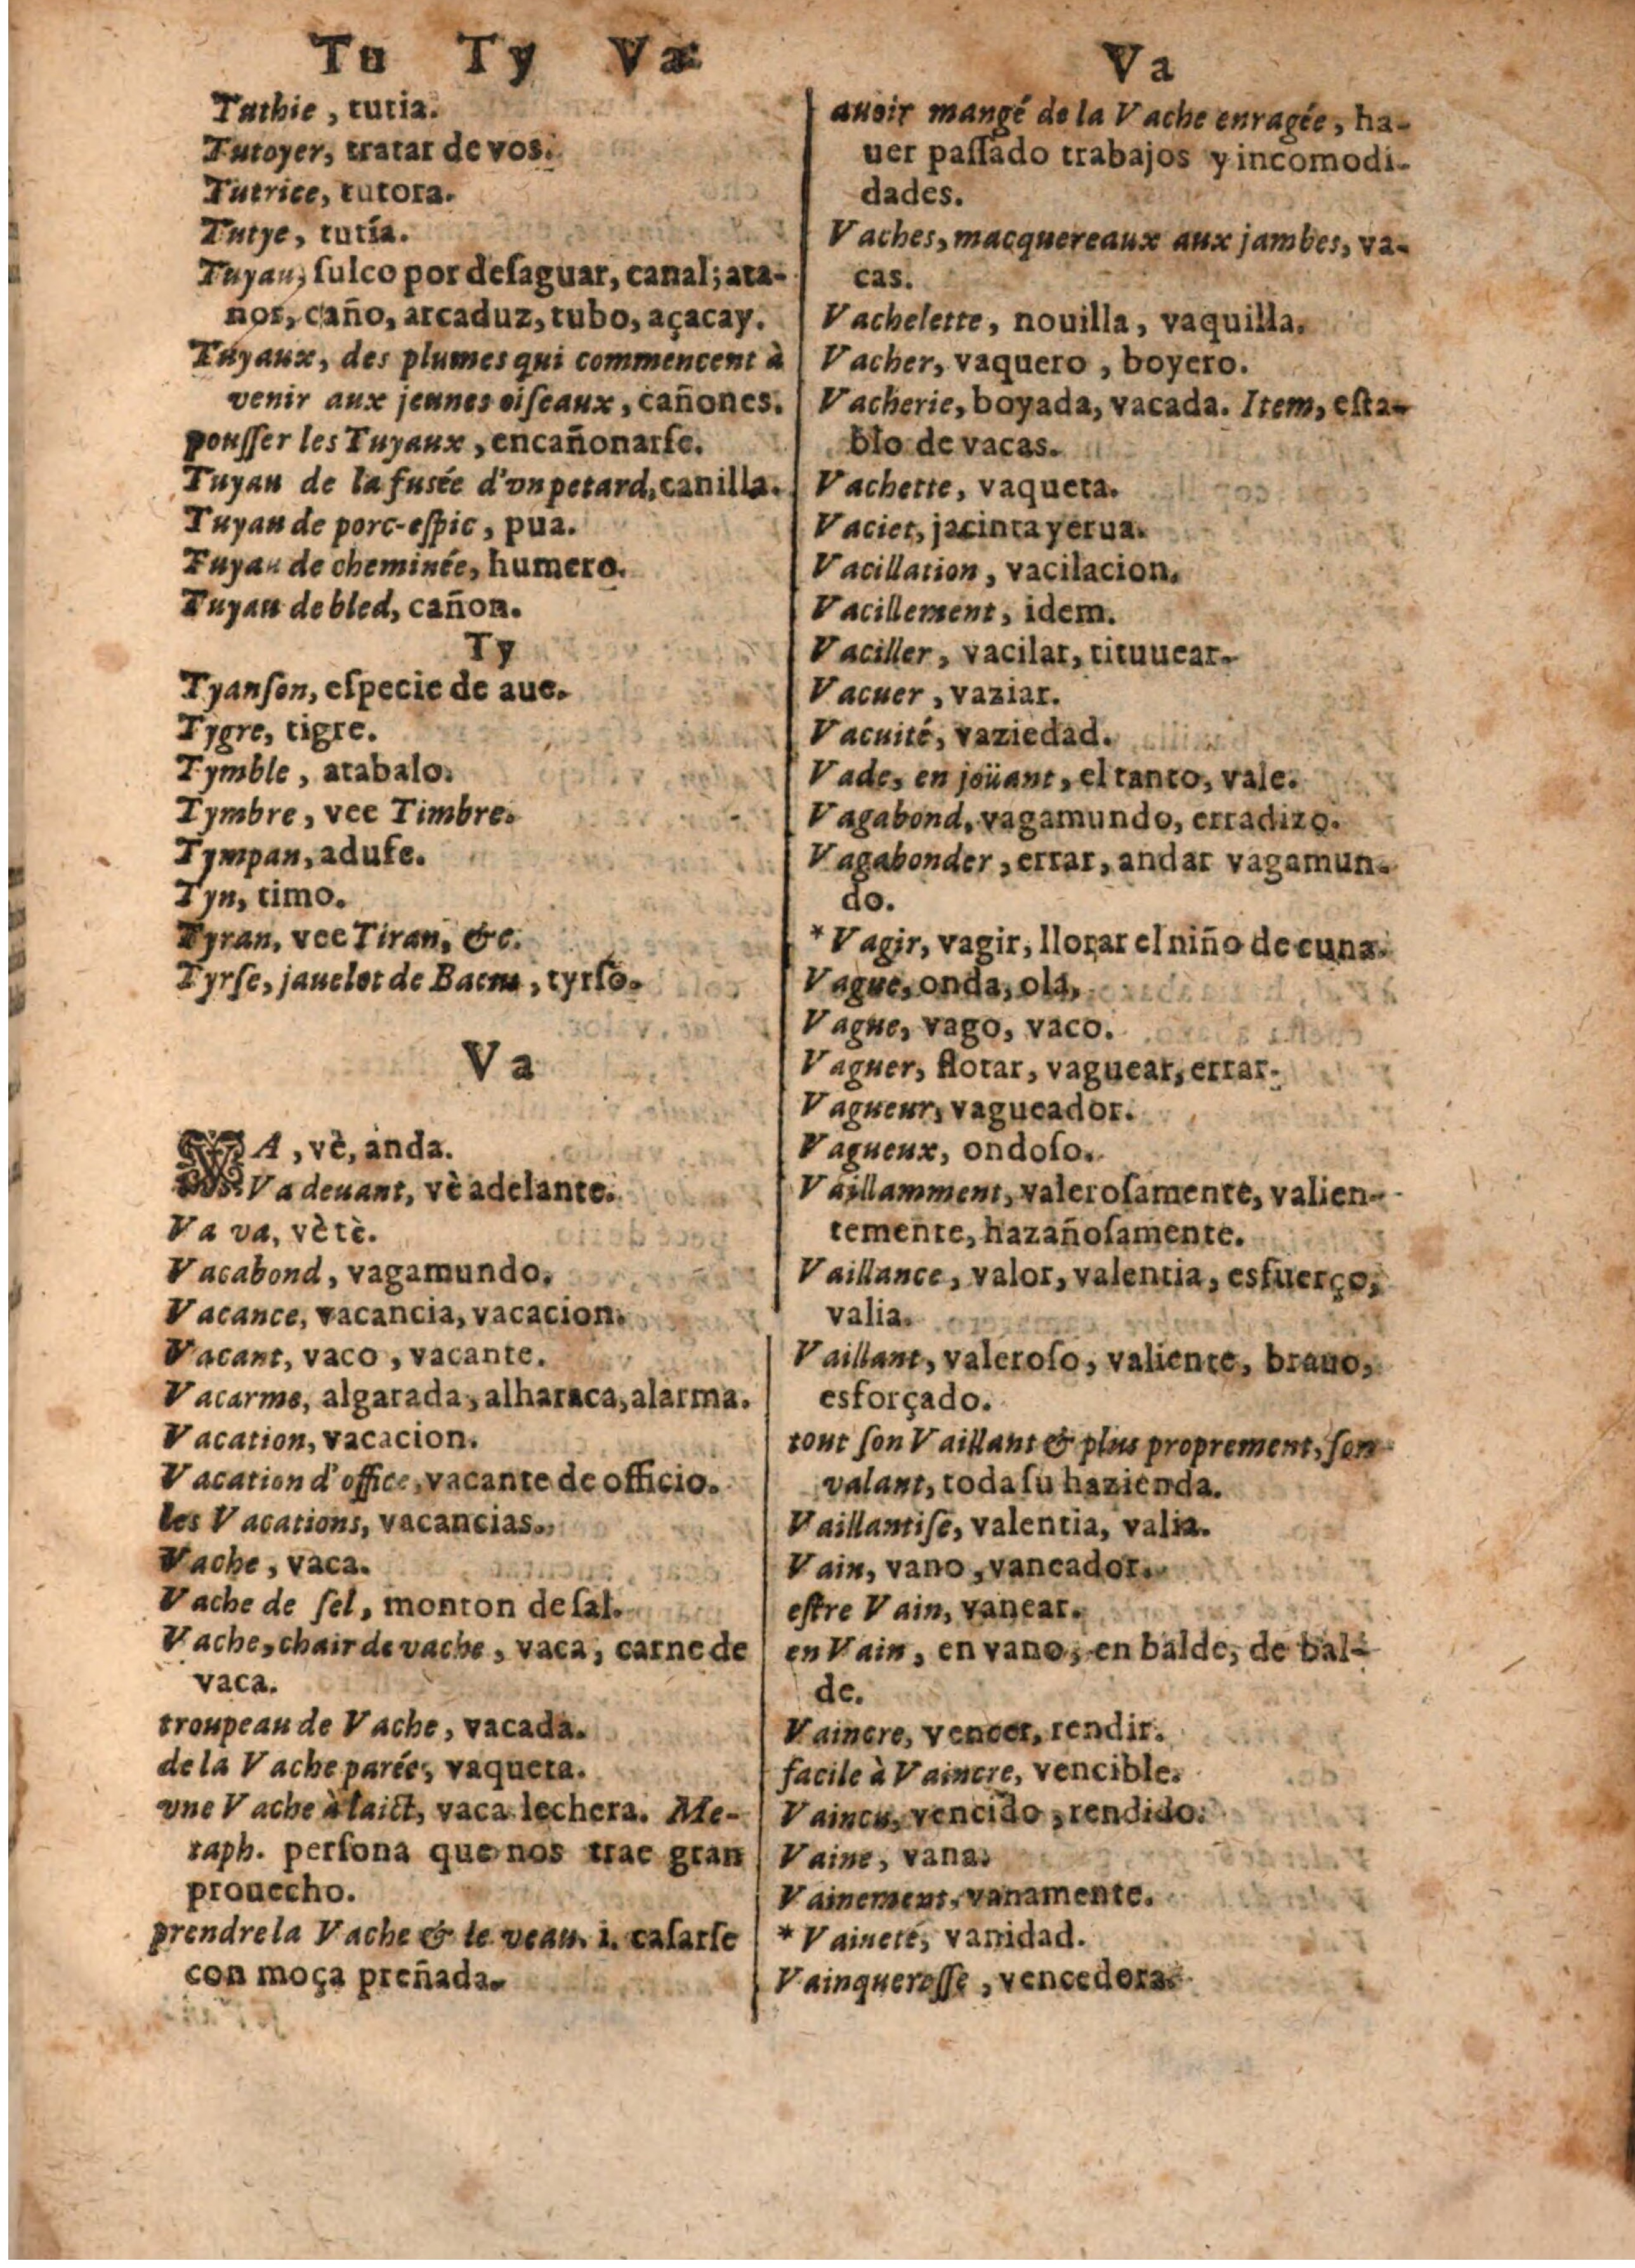 Tu Ty Va
Tuthie, tutia.
Tutoyer, tratar de vos.
Tutrice, tutora.
Tutye, tutía.
Tuyau, ſulco por deſaguar, canal; ata-
nor, caño, arcaduz, tubo, açacay.
Tuyaux, des plumes qui commencent à
venir aux jeunes oiſeaux, cañones.
pouſſer les Tuyaux, encañonarſe.
Tuyau de la fusée d'vn petard, canilla.
Tuyau de porc-eſpic, pua.
Tuyau de cheminée, humero.
Tuyau de bled, cañon.
Ty
Tyanſon, eſpecie de aue.
Tygre, tigre.
Tymble, atabalo.
Tymbre, vee Timbre.
Tympan, adufe.
Tyn, timo.
Tyran, vee Tiran, &c.
Tyrſe, jauelot de Bacus, tyrſo.
Va
VA, vè, anda.
Va deuant, vè adelante.
Va va, vètè.
Vacabond, vagamundo.
Vacance, vacancia, vacacion.
Vacant, vaco, vacante.
Vacarme, algarada, alharaca, alarma.
Vacation, vacacion.
Vacation d'office, vacante de officio.
les Vacations, vacancias.
Vache, vaca.
Vache de ſel, monton de ſal.
Vache, chair de vache, vaca, carne de
vaca.
troupeau de Vache, vacada.
de la Vache parée, vaqueta.
vne Vache à laict, vaca lechera. Me-
taph. perſona que nos trae gran
prouecho.
prendre la Vache & le veau. i. caſarſe
con moça preñada.
Va
auoir mangé de la Vache enragée, ha-
uer paſſado trabajos y incomodi-
dades.
Vaches, macquereaux aux jambes, va-
cas.
Vachelette, nouilla, vaquilla.
Vacher, vaquero, boyero.
Vacherie, boyada, vacada. Item, eſta-
blo de vacas.
Vachette, vaqueta.
Vaciet, jacinta yerua.
Vacillation, vacilacion.
Vacillement, idem.
Vaciller, vacilar, tituuear.
Vacuer, vaziar.
Vacuité, vaziedad.
Vade, en joüant, el tanto, vale.
Vagabond, vagamundo, erradizo.
Vagabonder, errar, andar vagamun-
do.
*Vagir, vagir, llorar el niño de cuna.
Vague, onda, ola.
Vague, vago, vaco.
Vaguer, flotar, vaguear, errar.
Vagueur, vagueador.
Vagueux, ondoſo.
Vaillamment, valeroſamente, valien-
temente, hazañoſamente.
Vaillance, valor, valentia, esfuerço,
valia.
Vaillant, valeroſo, valiente, brauo,
esforçado.
tout ſon Vaillant & plus proprement, ſon
valant, toda ſu hazienda.
Vaillantiſe, valentia, valia.
Vain, vano, vaneador.
eſtre Vain, vanear.
en Vain, en vano, en balde, de bal-
de.
Vaincre, vencer, rendir.
facile à Vaincre, vencible.
Vaincu, vencido, rendido.
Vaine, vana.
Vainement, vanamente.
*Vaineté, vanidad.
Vainquereſſe, vencedora.